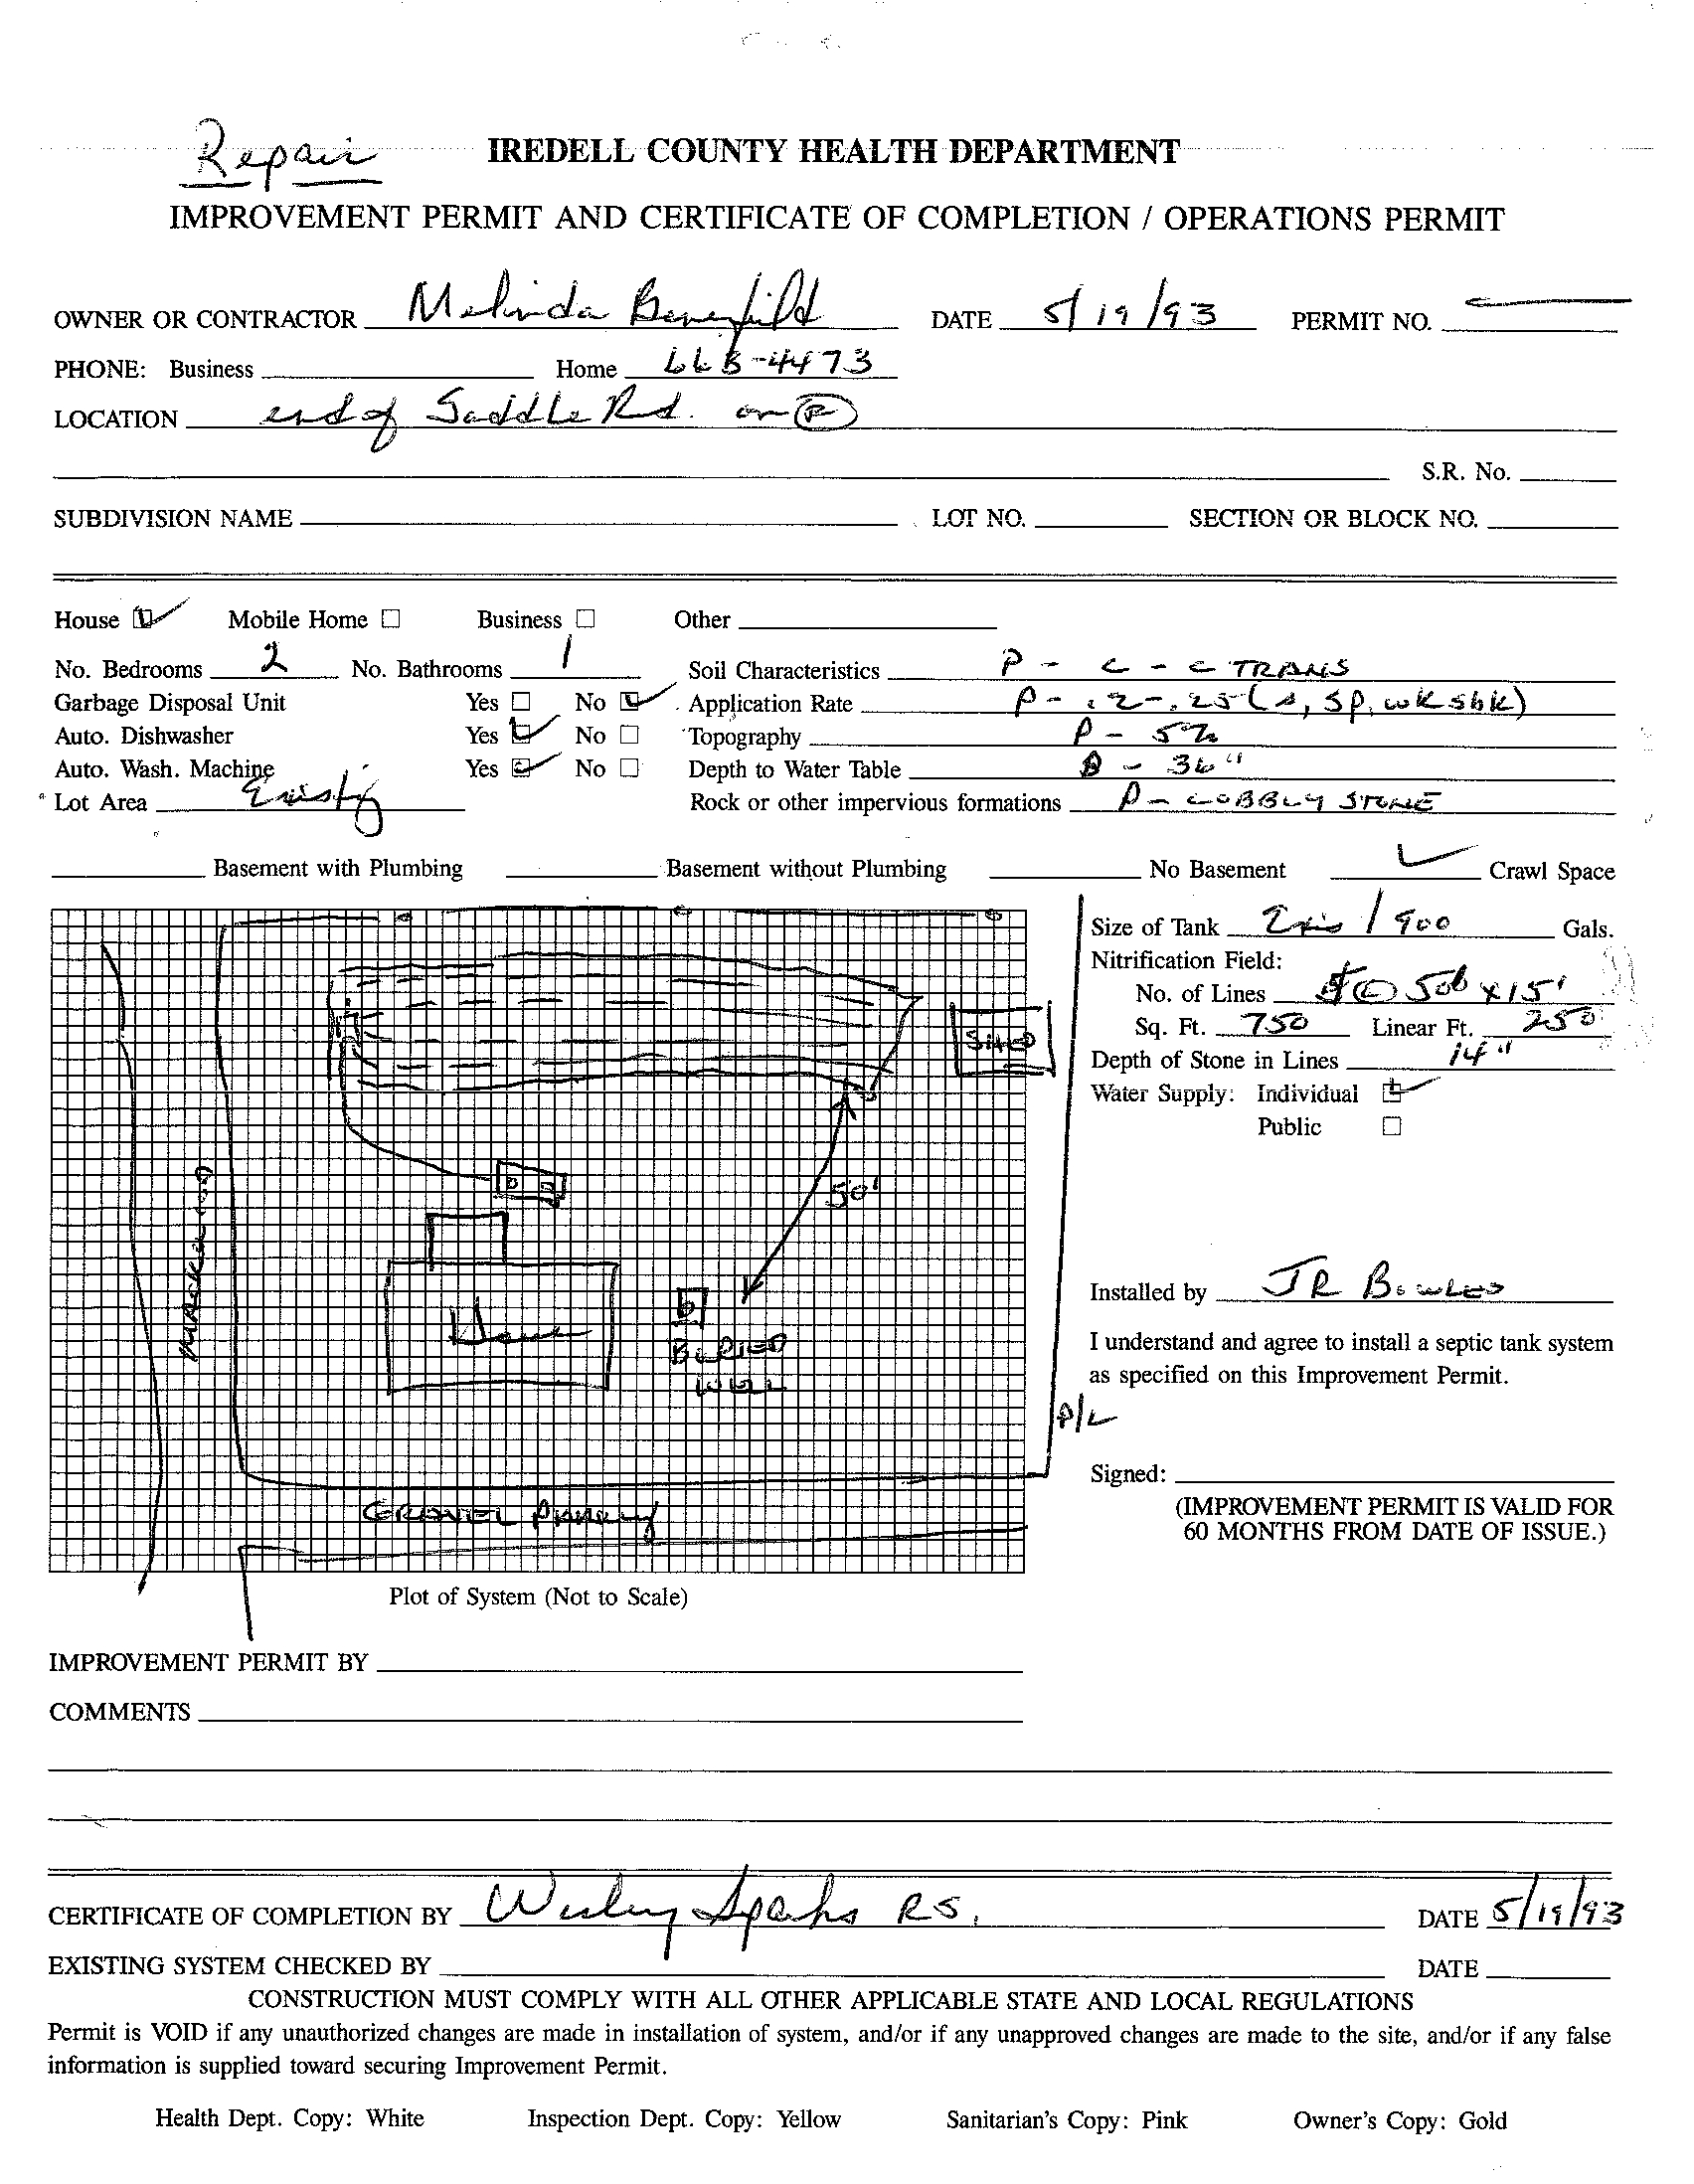 Repair IREDELL COUNTY HEALTH DEPARTMENT
IMPROVEMENT PERMIT AND CERTIFICATE OF COMPLETION / OPERATIONS PERMIT
OWNER OR CONTRACTOR Melinda Benefild DATE 5/19/93 PERMIT NO.
PHONE: Business Home 663-4473
LOCATION end of Saddle Rd. on R
S.R. No.
SUBDIVISION NAME LOT NO. SECTION OR BLOCK NO.
House Mobile Home Business Other
No. Bedrooms 2 No. Bathrooms 1 Soil Characteristics P - C - C TRANS
Garbage Disposal Unit Yes No Application Rate P - .2-.25 (s, sp, wk sbk)
Auto. Dishwasher Yes No Topography P - 5%
Auto. Wash. Machine Yes No Depth to Water Table - 36"
Lot Area Existing Rock or other impervious formations P - COBBLY STONE
Basement with Plumbing Basement without Plumbing No Basement Crawl Space
Size of Tank Exis / 900 Gals.
Nitrification Field:
No. of Lines x 15'
Sq. Ft. 750 Linear Ft. 250
SHED
Depth of Stone in Lines 14"
Water Supply: Individual
Public
50'
House
BURIED
WELL
Installed by JR Bowles
I understand and agree to install a septic tank system
as specified on this Improvement Permit.
P/L
Signed:
(IMPROVEMENT PERMIT IS VALID FOR
60 MONTHS FROM DATE OF ISSUE.)
GRAVEL
Plot of System (Not to Scale)
IMPROVEMENT PERMIT BY
COMMENTS
CERTIFICATE OF COMPLETION BY Wesley Sparks R.S. DATE 5/19/93
EXISTING SYSTEM CHECKED BY DATE
CONSTRUCTION MUST COMPLY WITH ALL OTHER APPLICABLE STATE AND LOCAL REGULATIONS
Permit is VOID if any unauthorized changes are made in installation of system, and/or if any unapproved changes are made to the site, and/or if any false
information is supplied toward securing Improvement Permit.
Health Dept. Copy: White Inspection Dept. Copy: Yellow Sanitarian's Copy: Pink Owner's Copy: Gold